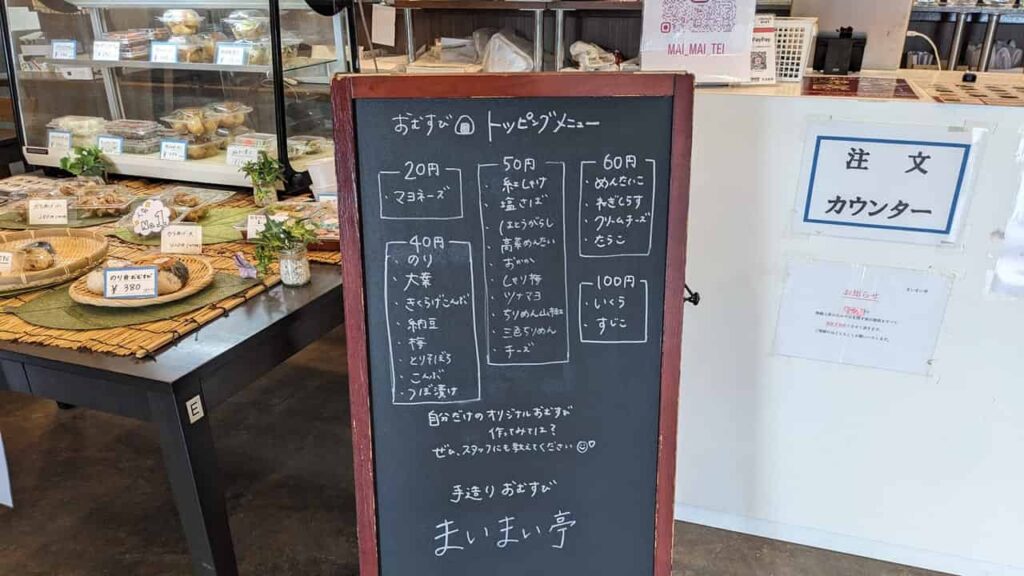 おむすび トッピングメニュー
20円
・マヨネーズ
40円
・のり
・大葉
・きくらげこんぶ
・納豆
・梅
・とりそぼろ
・こんぶ
・つぼ漬け
50円
・紅しゃけ
・塩さば
・ほとうがらし
・高菜めんたい
・おかか
・しそり梅
・ツナマヨ
・ちりめん山椒
・三色ちりめん
・チーズ
60円
・めんたいこ
・ねぎしらす
・クリームチーズ
・たらこ
100円
・いくら
・すじこ
自分だけのオリジナルおむすび
作ってみては?
ぜひ、スタッフにも教えてください
手造りおむすび
まいまい亭
MAI_MAI_TEI
PayPay
注 文
カウンター
お知らせ
¥380
No.1
E